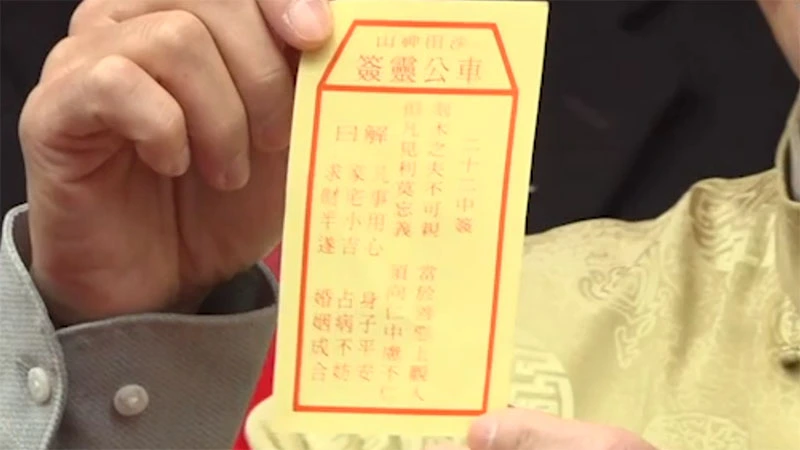 沙田碑山
車公靈簽
二十二中簽
木之夫不可親 當於善惡上觀人
但凡見利莫忘義 須向仁中慮不仁
解曰
凡事用心 身子平安
家宅小吉 占病不妨
求財半遂 婚姻成合